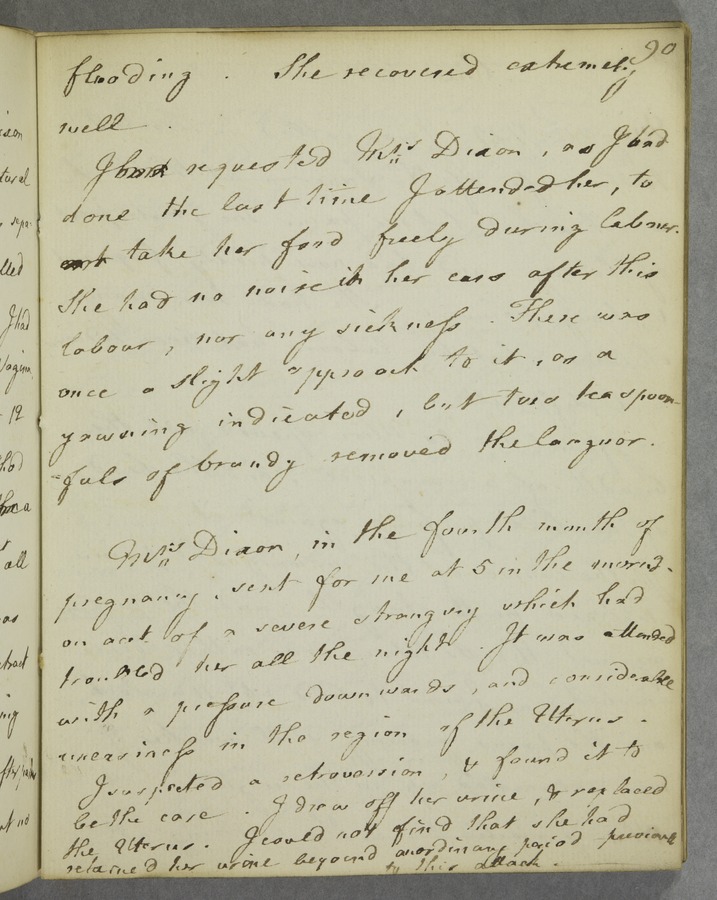 90
flooding . She recovered extremely
well .
I had requested Mrs Dixon , as I had
done the last time I attended her , to
take her food freely during labour.
She had no noise in her ears after this
labour , nor any sickness . There was
once a slight approach to it , as a
yawning indicated , but two teaspoon-
-fuls of brandy removed the languor .
Mrs Dixon , in the fourth month of
pregnancy , sent for me at 5 in the morng.
on acct of a severe strangury which had
troubled her all the night . It was attended
with a pressure downwards , and considerable
uneasiness in the region of the Uterus .
I suspected a retroversion , & found it to
be the case . I drew off her urine , & replaced
the Uterus . I could not find that she had
retained her urine beyond an ordinary period previous
to this attack .